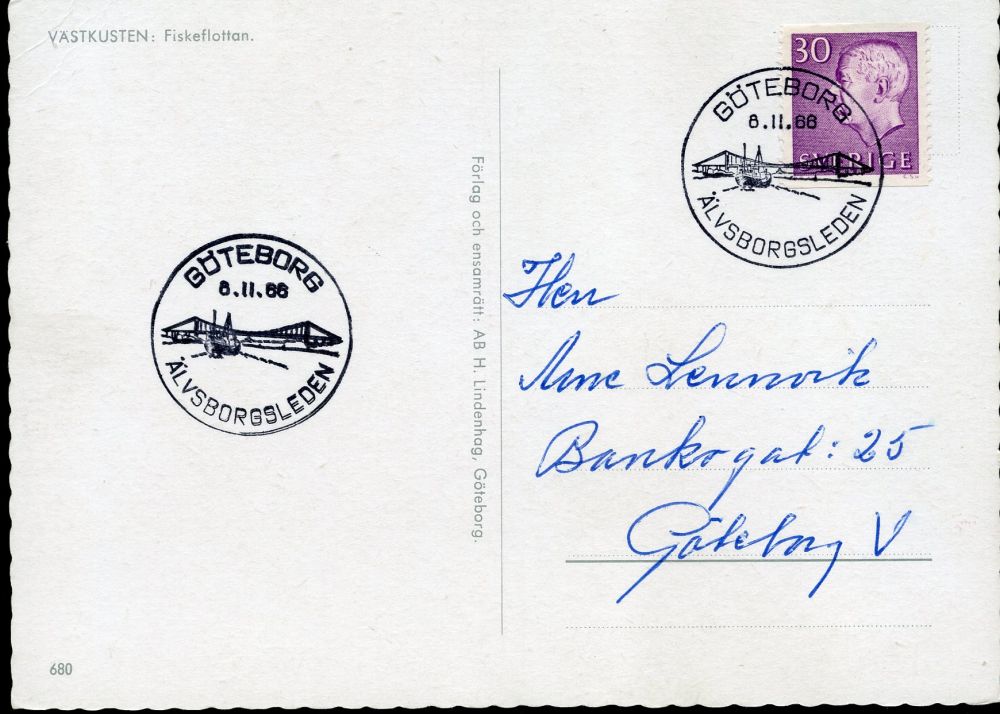 VÄSTKUSTEN: Fiskeflottan.
30
SVERIGE
GÖTEBORG
8.11.66
ÄLVSBORGSLEDEN
GÖTEBORG
8.11.66
ÄLVSBORGSLEDEN
Förlag och ensamrätt: AB H. Lindenhag, Göteborg.
Herr
Arne Lennvik
Bankogat: 25
Göteborg V
680